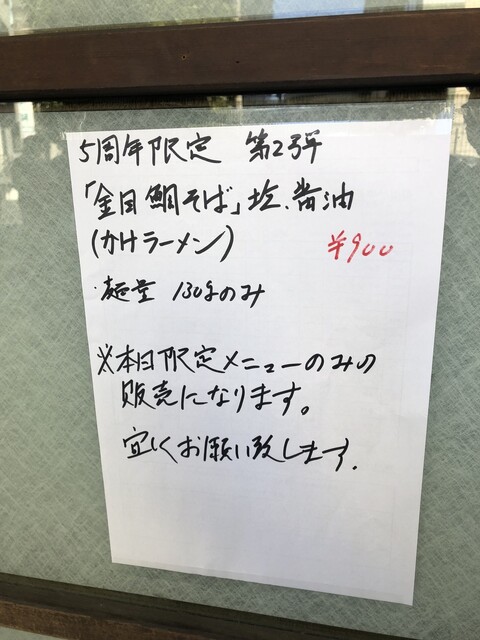 5周年限定 第2弾
「金目鯛そば」塩、醤油
(かけラーメン) ¥900
・麺量 130gのみ
※本日限定メニューのみの
販売になります。
宜しくお願い致します。